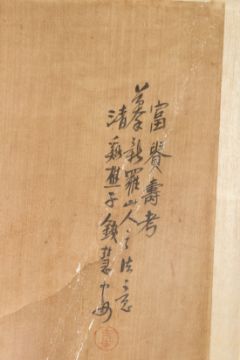 富貴壽考
摹新羅山人之法意
清谿樵子錢慧安